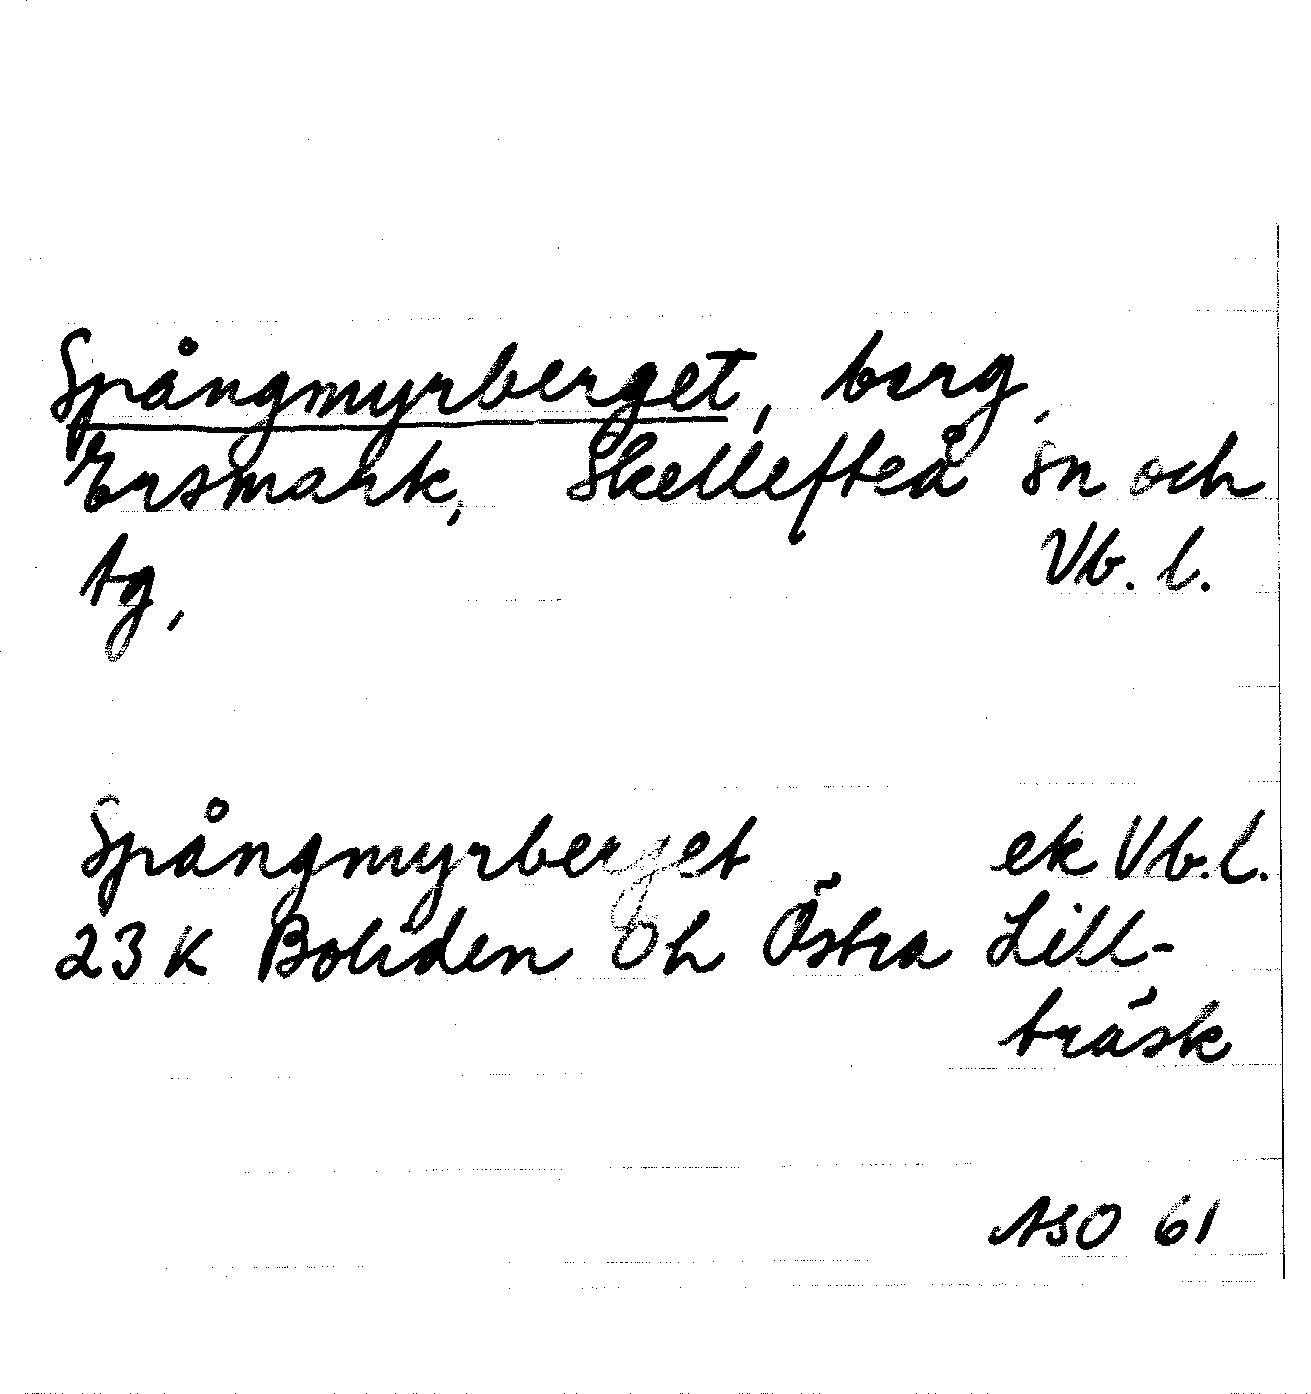 Spångmyrberget, berg,
Ersmark, Skellefteå sn och
tg, Vb. l.
Spångmyrberget ek Vb.l.
23 K Boliden 0h Östra Lill-
träsk
ASO 61